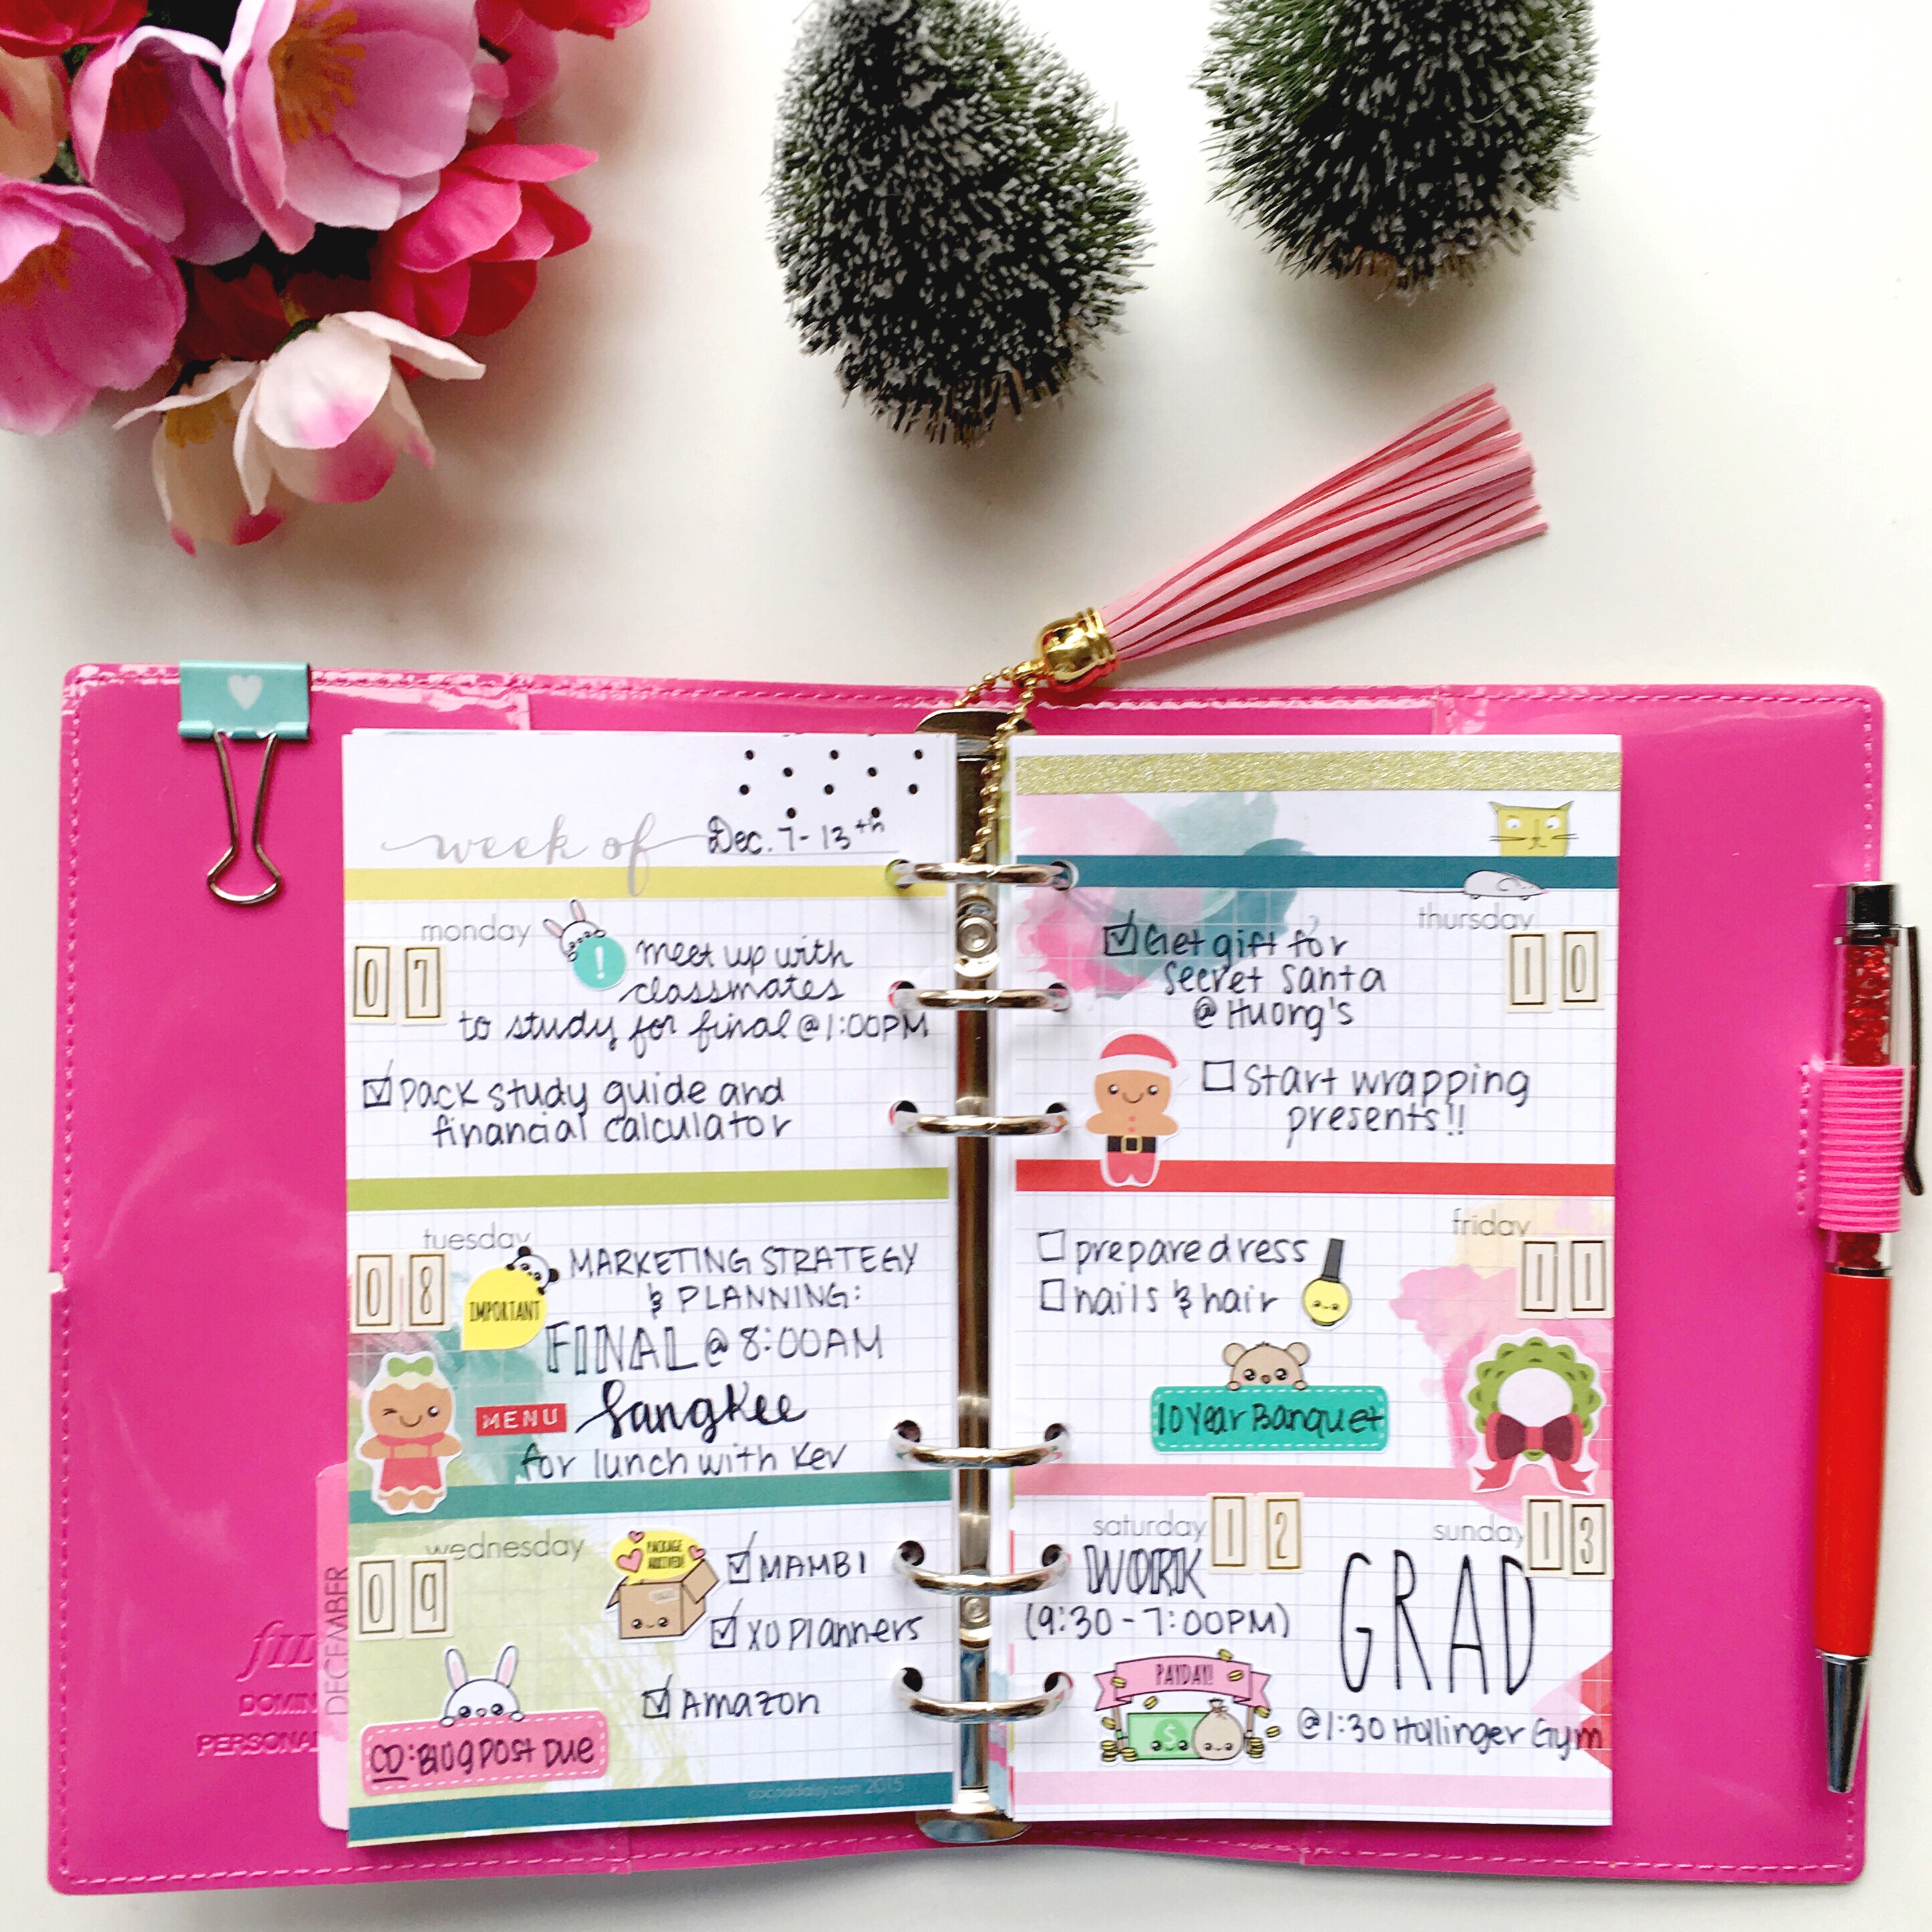 week of Dec. 7-13th
monday
07
!
meet up with
classmates
to study for final @ 1:00PM
Pack study guide and
financial calculator
tuesday
08
IMPORTANT
MARKETING STRATEGY
& PLANNING:
FINAL @ 8:00AM
MENU
SangKee
for lunch with Kev
wednesday
09
PACKAGE
ARRIVED!
MAMBI
XO Planners
Amazon
CD: Blog Post Due
cocoadaisy.com 2015
DECEMBER
PERSONAL
thursday
10
Get gift for
Secret Santa
@ Huong's
Start wrapping
presents!!
friday
11
prepare dress
nails & hair
10 Year Banquet
saturday 12
WORK
(9:30-7:00PM)
PAYDAY!
$
sunday 13
GRAD
@1:30 Hollinger Gym